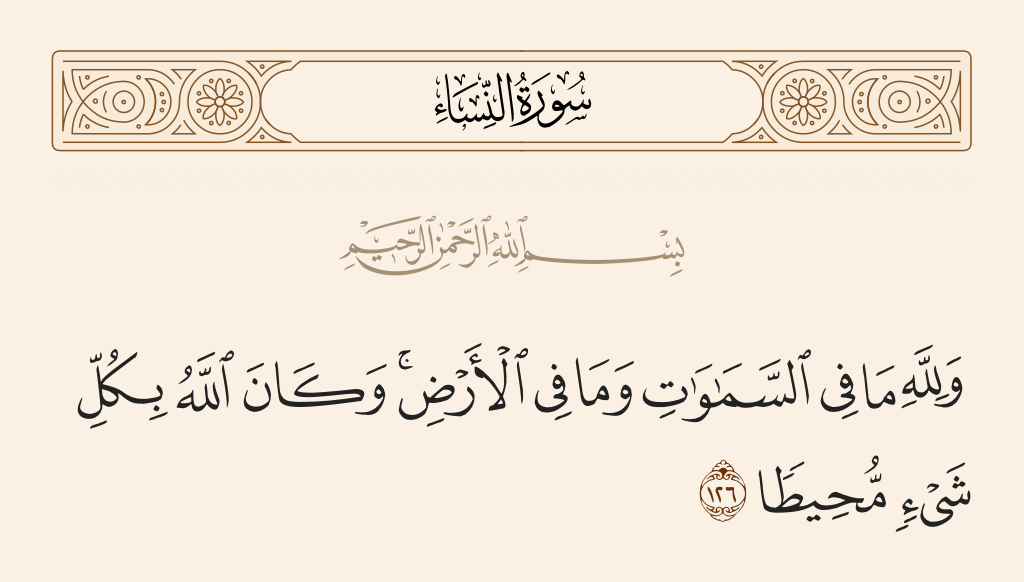 سُورَةُ النِّسَاءِ
بِسْمِ ٱللَّهِ ٱلرَّحْمَٰنِ ٱلرَّحِيمِ
وَلِلَّهِ مَا فِى ٱلسَّمَٰوَٰتِ وَمَا فِى ٱلْأَرْضِ ۚ وَكَانَ ٱللَّهُ بِكُلِّ
شَىْءٍ مُّحِيطًا ١٢٦